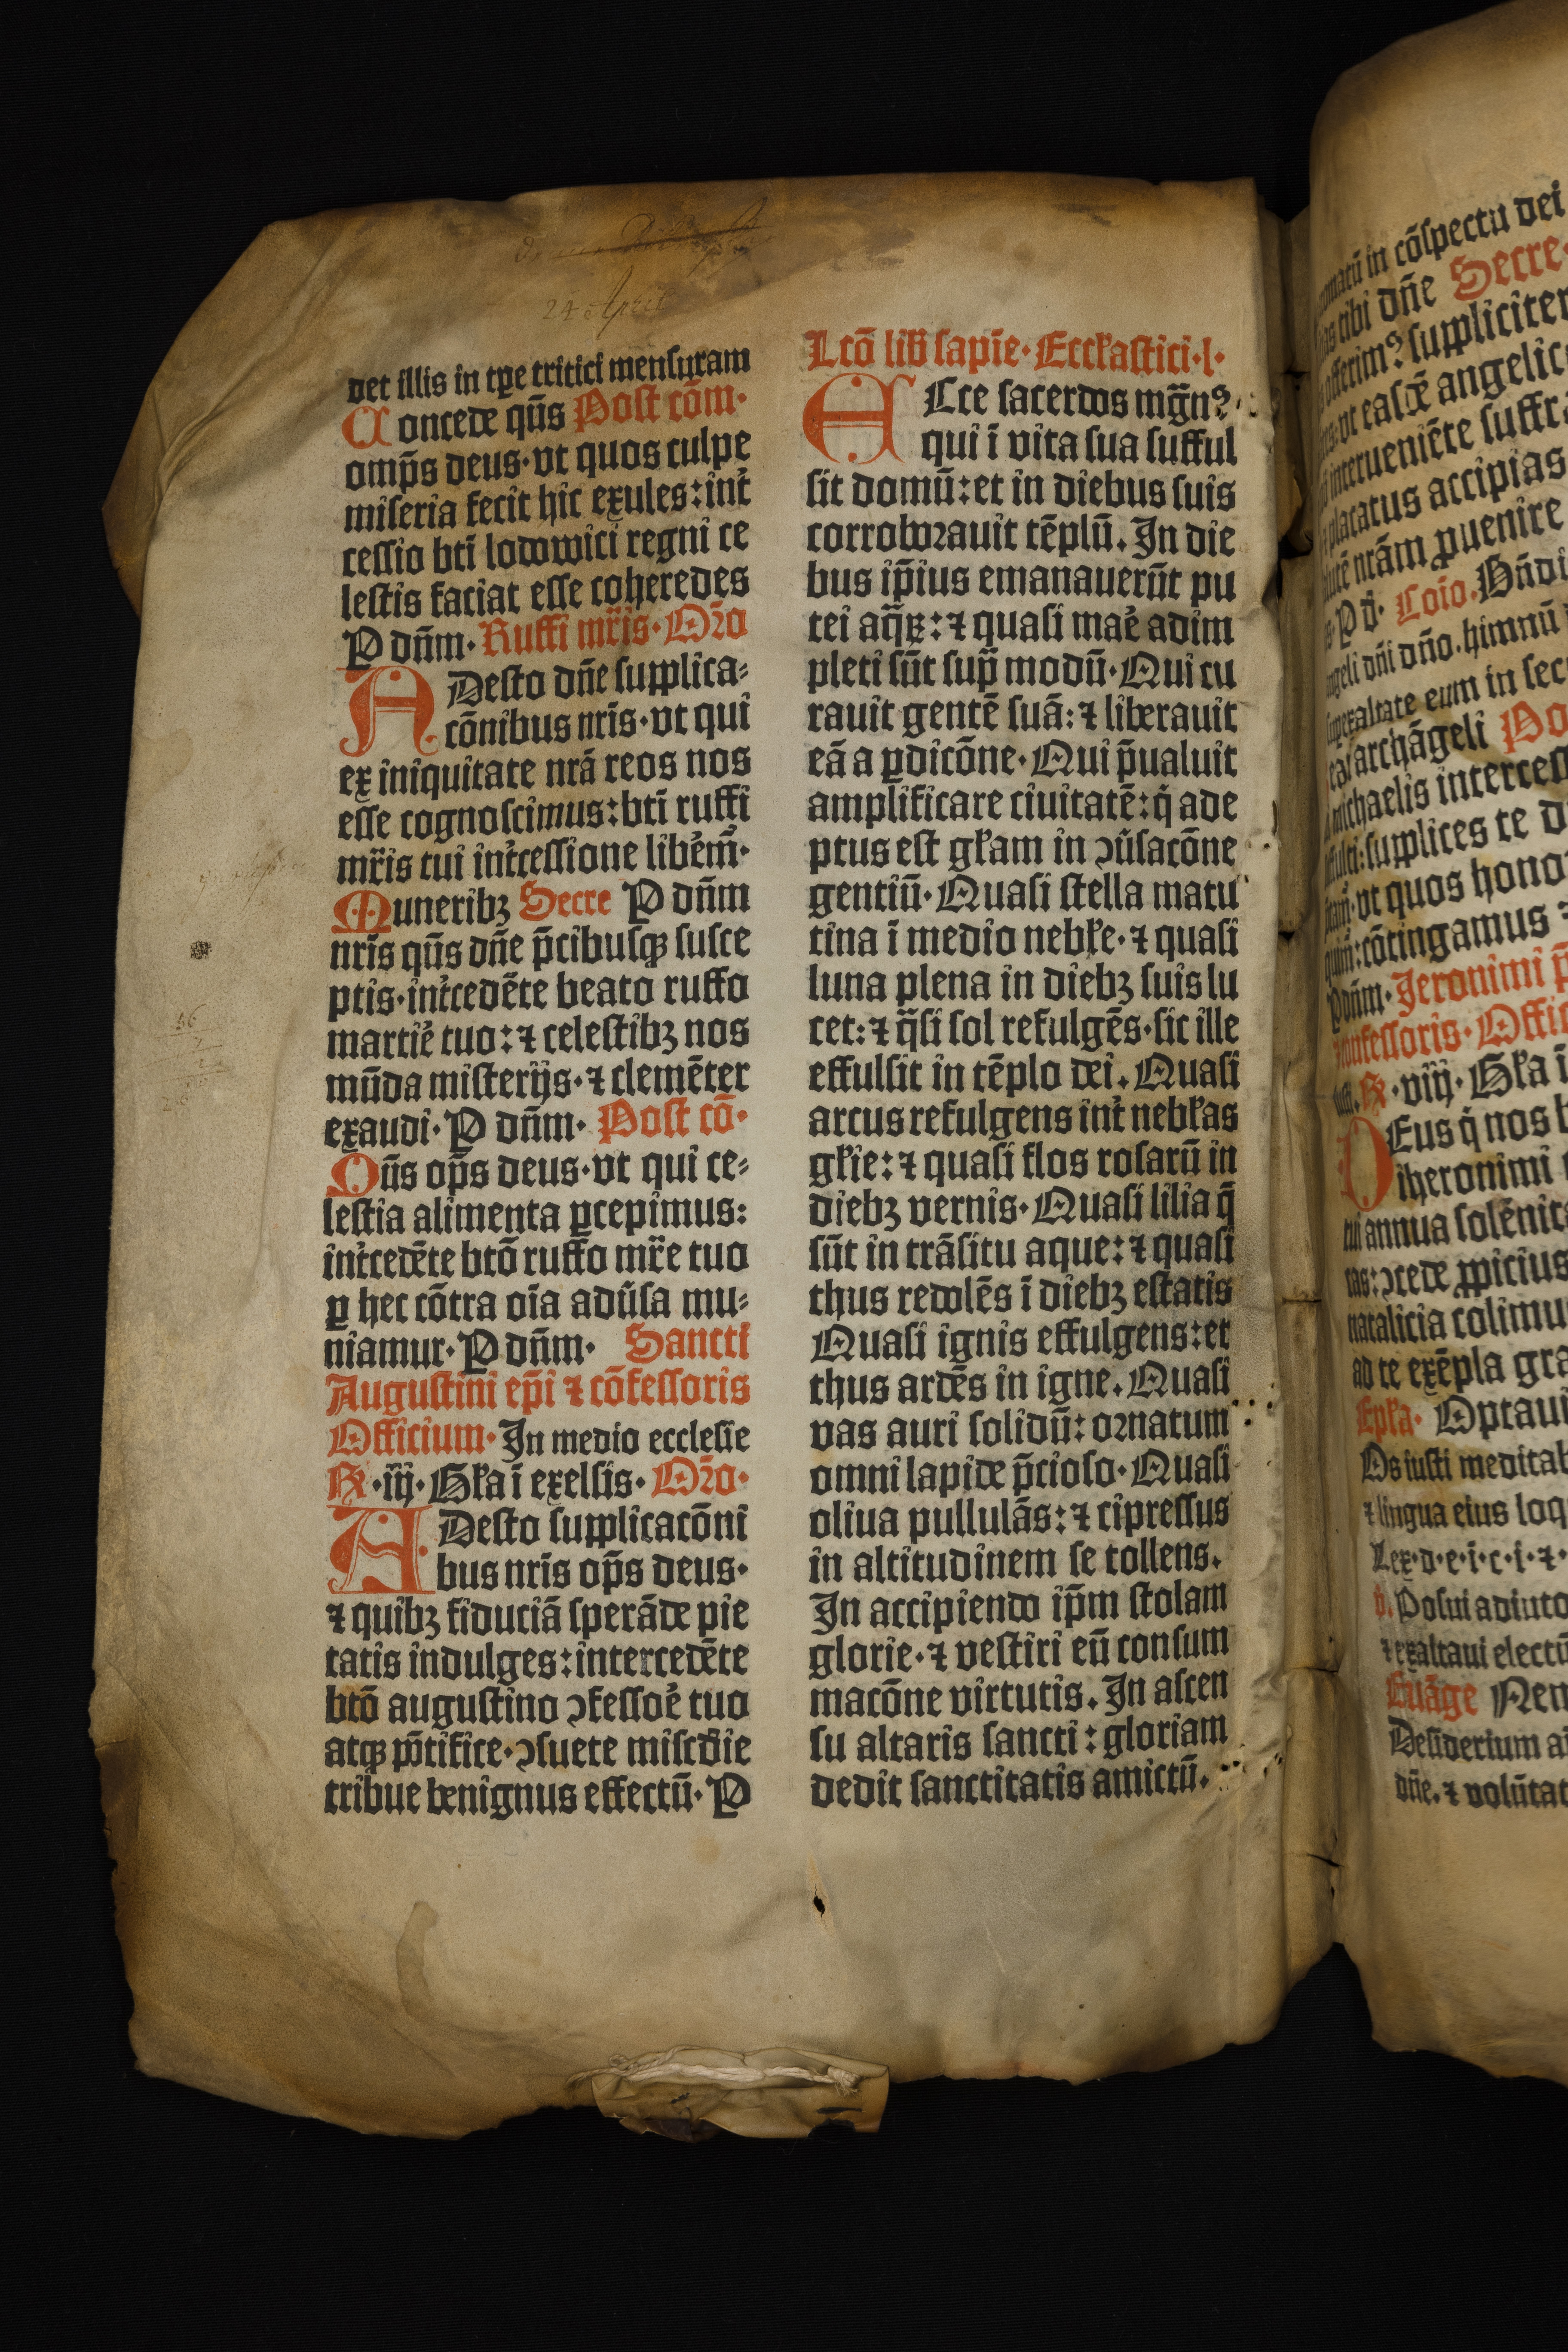 24 April
det illis in tꝑe tritici mensuram
Concede qu̅s Post co̅m·
omp̅s deus·vt quos culpe
miseria fecit hic exules:int̉
cessio bti̅ lodowici regni ce
lestis faciat esse coheredes
P dn̅m· Ruffi mr̅is·Or̅o
ADesto dn̅e supplica⸗
co̅nibus nr̅is·vt qui
ex iniquitate nra̅ reos nos
esse cognoscimus:bti̅ ruffi
mr̅is tui int̉cessione libẻm̅·
Muneribꝫ Secre P dn̅m
nr̅is qu̅s dn̅e p̅cibusqꝫ susce
ptis·int̉cede̅te beato ruffo
martiẻ tuo:⁊ celestibꝫ nos
mu̅da misterijs·⁊ cleme̅ter
exaudi·P dn̅m· Post co̅·
Qu̅s op̅s deus·vt qui ce⸗
lestia alimenta ꝑcepimus:
int̉cede̅te bto̅ ruffo mr̅e tuo
ꝑ hec co̅tra oi̅a adủsa mu⸗
niamur·P dn̅m· Sancti
Augustini ep̅i ⁊ co̅fessoris
Officium·In medio ecclesie
℞·iij·Gła i̅ exelsis·Or̅o·
ADesto supplicaco̅ni
bus nr̅is op̅s deus·
⁊ quibꝫ fiducia̅ spera̅de pie
tatis indulges:intercede̅te
bto̅ augustino ꝯfessoẻ tuo
atqꝫ po̅tifice·ꝯsuete misc̅die
tribue benignus effectu̅·P
Lco̅ lib̅ sapi̅e·Eccłastici·l·
ECce sacerdos mg̅nꝰ
qui i̅ vita sua sufful
sit domu̅:et in diebus suis
corroborauit te̅plu̅.In die
bus ip̅ius emanaueru̅t pu
tei aq̅ꝝ:⁊ quasi maẻ adim
pleti su̅t sup̅ modu̅·Qui cu
rauit gente̅ sua̅:⁊ liberauit
ea̅ a ꝑdico̅ne·Qui p̅ualuit
amplificare ciuitate̅:q̉ ade
ptus est głam in ꝯủsaco̅ne
gentiu̅·Quasi stella matu
tina i̅ medio nebłe·⁊ quasi
luna plena in diebꝫ suis lu
cet:⁊ q̅si sol refulge̅s·sic ille
effulsit in te̅plo dei.Quasi
arcus refulgens int̉ nebłas
głie:⁊ quasi flos rosaru̅ in
diebꝫ vernis·Quasi lilia q̅
su̅t in tra̅situ aque:⁊ quasi
thus redole̅s i̅ diebꝫ estatis
Quasi ignis effulgens:et
thus arde̅s in igne.Quasi
vas auri solidu̅:ornatum
omni lapide p̅cioso·Quasi
oliua pullula̅s:⁊ cipressus
in altitudinem se tollens.
In accipiendo ip̅m stolam
glorie·⁊ vestiri eu̅ consum
maco̅ne virtutis.In ascen
su altaris sancti:gloriam
dedit sanctitatis amictu̅.
in co̅spectu dei
tibi dn̅e Secre·
suppliciter
angelic
interuenie̅te suffra
placatus accipias
nr̅am ꝑuenire
P d̅· Coi̅o.Bn̅di
dn̅i dn̅o.himnu̅
eum in sec
archa̅geli Po
michaelis interces
supplices te d
vt quos hono
co̅tingamus ⁊
P dn̅m·Jeronimi p̅
confessoris·Offic
℞·viij·Gła i̅
DEus q̉ nos b
iheronimi
tui annua sole̅nita
tas:ꝯcede ꝓpicius
natalicia colimu
ad te exe̅pla gra
Epła· Optaui
Os iusti meditab
⁊ lingua eius loq
Lex·d·e·i·c·i·⁊·
v.Posui adiuto
⁊ exaltaui electu̅
Eua̅ge Nem
Desiderium a
dn̅e.⁊ volu̅tat